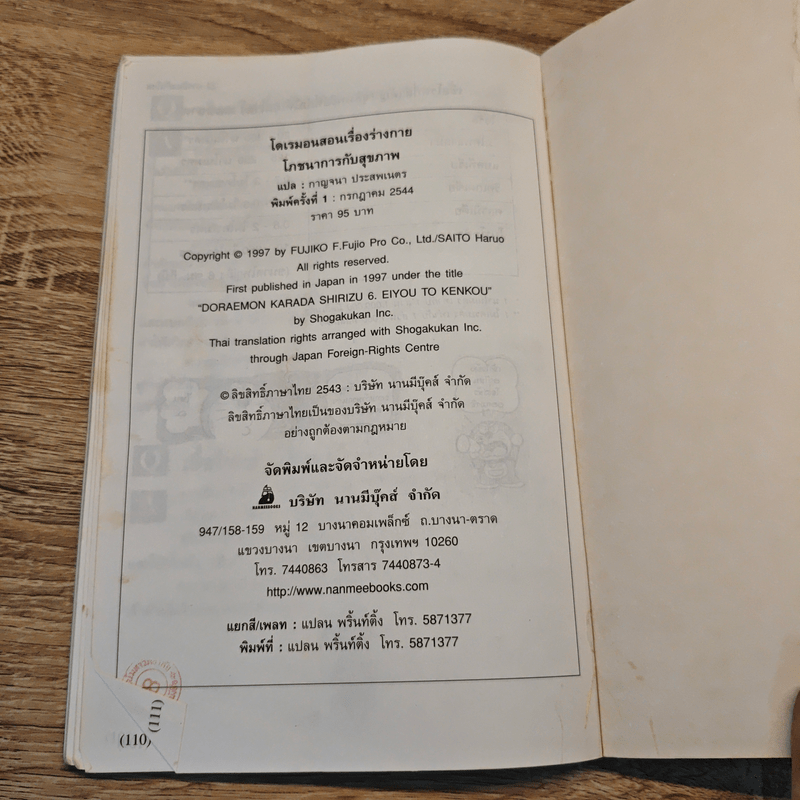 โดเรมอนสอนเรื่องร่างกาย
โภชนาการกับสุขภาพ
แปล : กาญจนา ประสพเนตร
พิมพ์ครั้งที่ 1 : กรกฎาคม 2544
ราคา 95 บาท
Copyright © 1997 by FUJIKO F.Fujio Pro Co., Ltd./SAITO Haruo
All rights reserved.
First published in Japan in 1997 under the title
"DORAEMON KARADA SHIRIZU 6. EIYOU TO KENKOU"
by Shogakukan Inc.
Thai translation rights arranged with Shogakukan Inc.
through Japan Foreign-Rights Centre
© ลิขสิทธิ์ภาษาไทย 2543 : บริษัท นานมีบุ๊คส์ จำกัด
ลิขสิทธิ์ภาษาไทยเป็นของบริษัท นานมีบุ๊คส์ จำกัด
อย่างถูกต้องตามกฎหมาย
จัดพิมพ์และจัดจำหน่ายโดย
NANMEEBOOKS บริษัท นานมีบุ๊คส์ จำกัด
947/158-159 หมู่ 12 บางนาคอมเพล็กซ์ ถ.บางนา-ตราด
แขวงบางนา เขตบางนา กรุงเทพฯ 10260
โทร. 7440863 โทรสาร 7440873-4
http://www.nanmeebooks.com
แยกสี/เพลท : แปลน พริ้นท์ติ้ง โทร. 5871377
พิมพ์ที่ : แปลน พริ้นท์ติ้ง โทร. 5871377
(110)
(111)